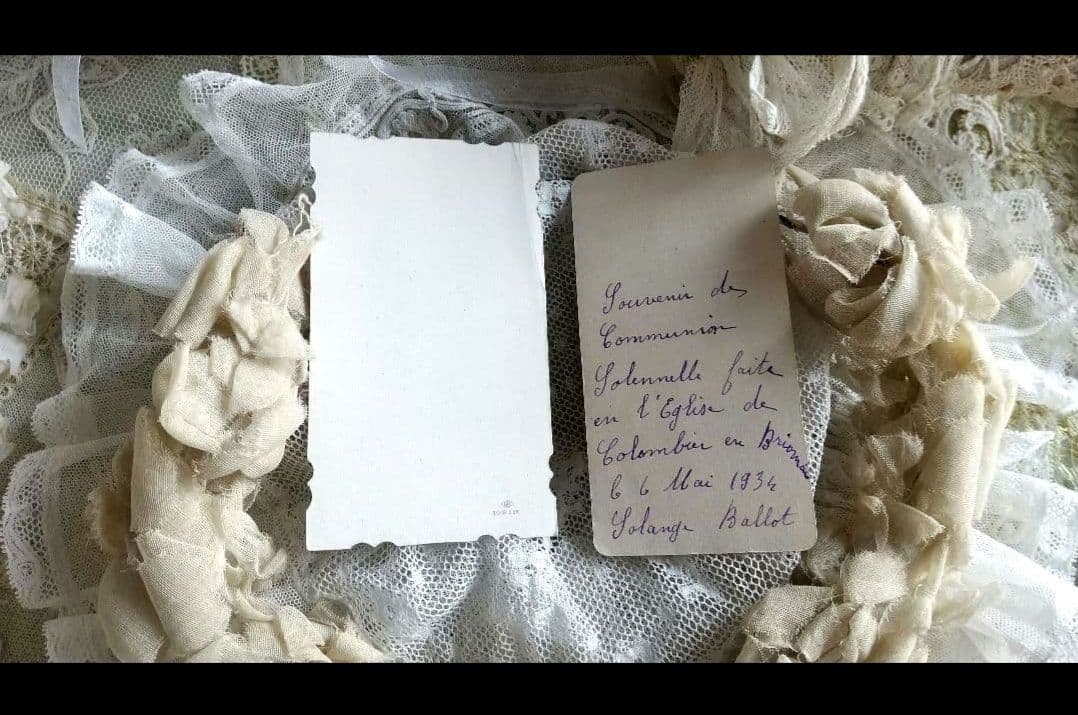 Souvenir de
Communion
Solennelle faite
en l'Eglise de
Colombier en Brionnais
6 6 Mai 1934
Solange Ballot